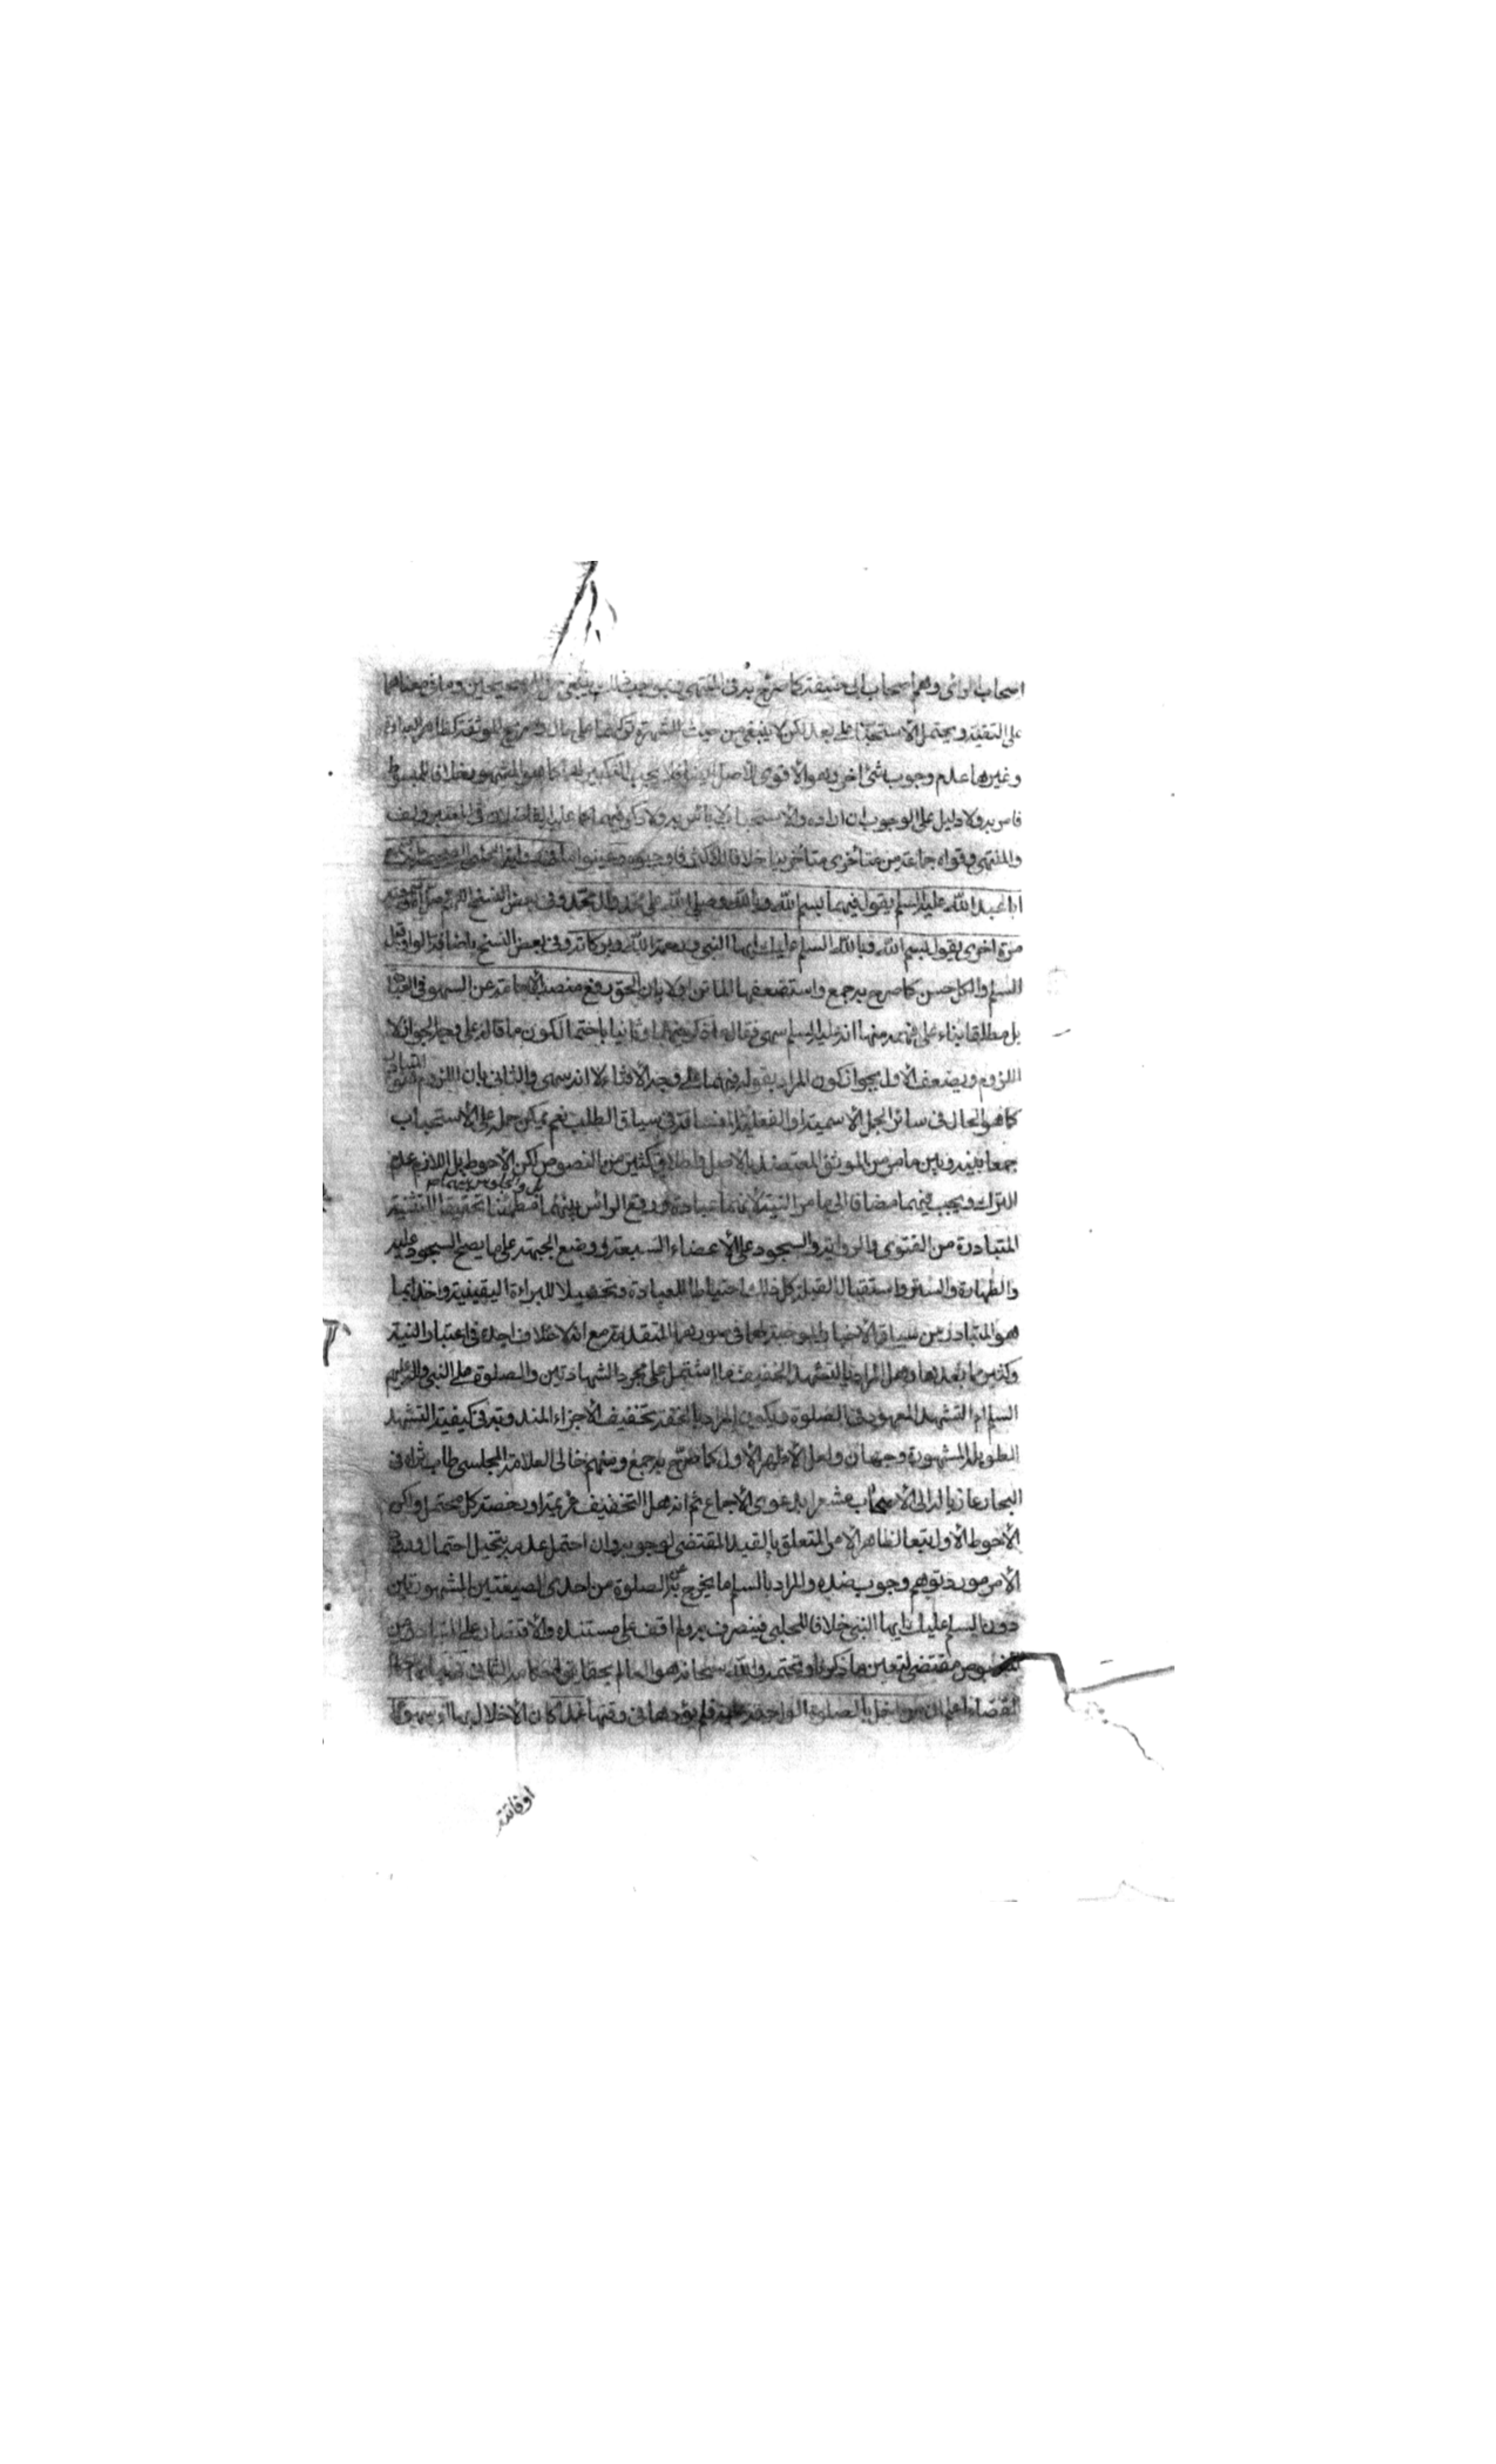 اصحاب الرأى وهم اصحاب ابى حنيفة كما صرح به فى المنتهى
على التقية ويحتمل الاستحباب لكن لا ينبغى من حيث الشهرة
وغيرها عدم وجوب شئ اخر وهو الاقوى للاصل فلا يجب التكبير لهما كما هو المشهور خلافا للمبسوط
فامر به ولا دليل على الوجوب ان اراده والاستحباب لا بأس به ولا ذكر فيهما
والمنتهى وقواه جماعة من متأخرى متأخرينا خلافا للاكثر فاوجبوه
ابا عبد الله عليه السلم يقول فيهما بسم الله وبالله وصلى الله على محمد وال محمد وفى بعض النسخ اللهم صل
مرة اخرى يقول بسم الله وبالله السلم عليك ايها النبى ورحمة الله وبركاته وفى بعض النسخ باضافة الواو قبل
السلم والكل حسن كما صرح به جمع واستضعفها الماتن اولا بان الحق رفع منصب الامامة عن السهو فى العبادة
بل مطلقا بناء على فهمه منها انه عليه السلم سهى فقال ما ذكر فيهما وثانيا باحتمال كون ما قاله على وجه الجواز لا
اللزوم ويضعف الاول بجواز كون المراد بقوله فيهما على وجه الافتاء لا انه سهى والثانى بان اللزوم هو المتبادر
كما هو الحال فى سائر الجمل الاسمية او الفعلية فى سياق الطلب نعم يمكن حمله على الاستحباب
جمعا بينه وبين ما مر من الموثق المعتضد بالاصل واطلاق كثير من النصوص لكن الاحوط بل اللازم عدم
الترك ويجب فيهما مضافا الى ما مر النية لانهما عبادة ورفع الرأس بينهما مطمئنا تحقيقا للتثنية
المتبادرة من الفتوى والرواية والسجود على الاعضاء السبعة ووضع الجبهة على ما يصح السجود عليه
والطهارة والستر واستقبال القبلة كل ذلك احتياطا للعبادة وتحصيلا للبراءة اليقينية واخذا بما
هو المتبادر من سياق الاخبار الموجبة لهما فى صورها المتقدمة مع انه لا خلاف اجده فى اعتبار النية
وكثير ما بعدها وهل المراد بالتشهد الخفيف ما اشتمل على مجرد الشهادتين والصلوة على النبى واله عليهم
السلم ام التشهد المعهود فى الصلوة ويكون المراد بالخفة تخفيف الاجزاء المندوبة فى كيفية التشهد
الطويلة المشهورة وجهان ولعل الاظهر الاول كما صرح به جمع ومنهم خالى العلامة المجلسى طاب ثراه فى
البحار عازيا له الى الاصحاب مشعرا بدعوى الاجماع ثم انه هل التخفيف عزيمة او رخصة كل محتمل ولكن
الاحوط الاول تبعا لظاهر الامر المتعلق بالقيد المقتضى لوجوبه وان احتمل عدمه بتخيل احتمال ورود
الامر مورد توهم وجوب ضده والمراد بالسلم ما يخرج به عن الصلوة من احدى الصيغتين المشهورتين
دون السلم عليك ايها النبى خلافا للحلبى فينصرف به ولم اقف على مستنده والاقتصار على المتبادر من
النصوص مقتضى لتعين ما ذكرنا والله سبحانه هو العالم بحقائق احكامه الثانى
القضاء اعلم ان من اخل بالصلوة الواجبة عليه فلم يؤدها فى وقتها عمدا كان الاخلال بها او سهوا
او فاتته